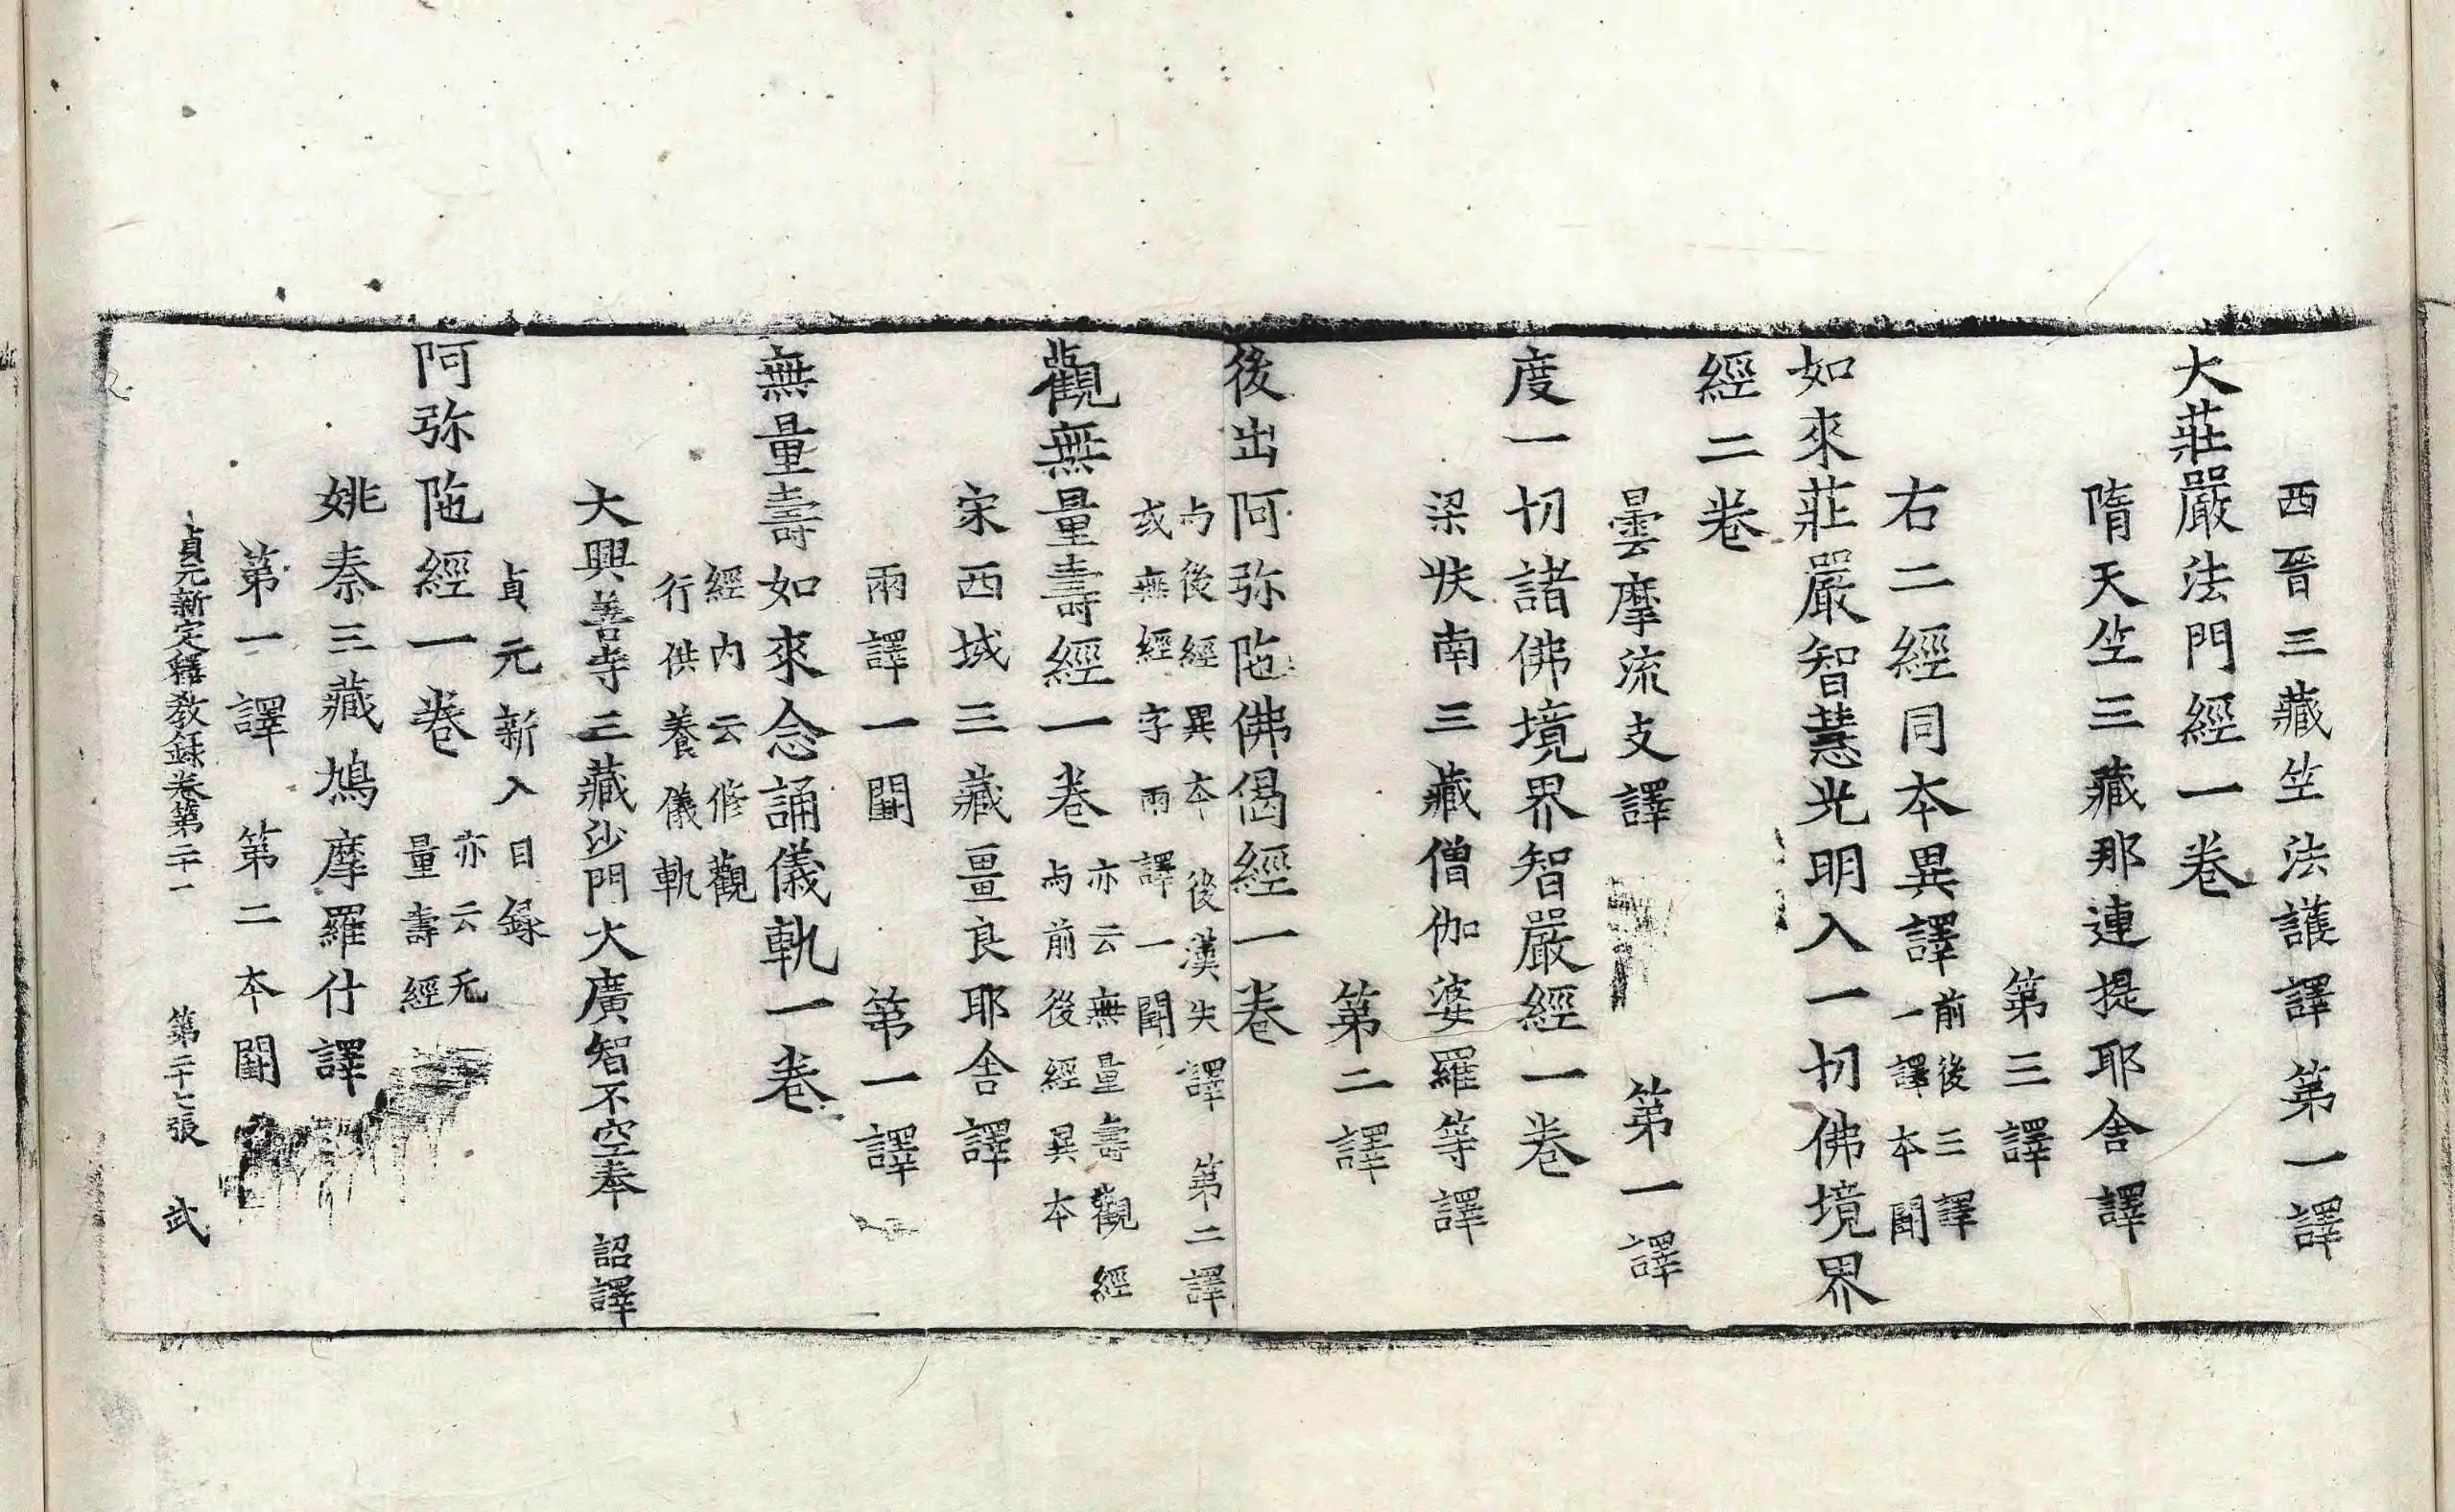 西晉三藏竺法護譯第一譯
大莊嚴法門經一卷
隋天竺三藏那連提耶舍譯
第三譯
右二經同本異譯前後三譯
一譯本闕
如來莊嚴智慧光明入一切佛境界
經二卷
曇摩流支譯　第一譯
度一切諸佛境界智嚴經一卷
梁扶南三藏僧伽婆羅等譯
第二譯
後出阿弥陁佛偈經一卷
与後經異本　後漢失譯　第二譯
或無經字兩譯一闕
觀無量壽經一卷亦云無量壽觀經
与前後經異本
宋西域三藏畺良耶舍譯
兩譯一闕　第一譯
無量壽如來念誦儀軌一卷
經內云修觀
行供養儀軌
大興善寺三藏沙門大廣智不空奉　詔譯
貞元新入目錄
阿弥陁經一卷亦云无
量壽經
姚秦三藏鳩摩羅什譯
第一譯　第二本闕
貞元新定釋教錄卷第二十一　第二十七張　武